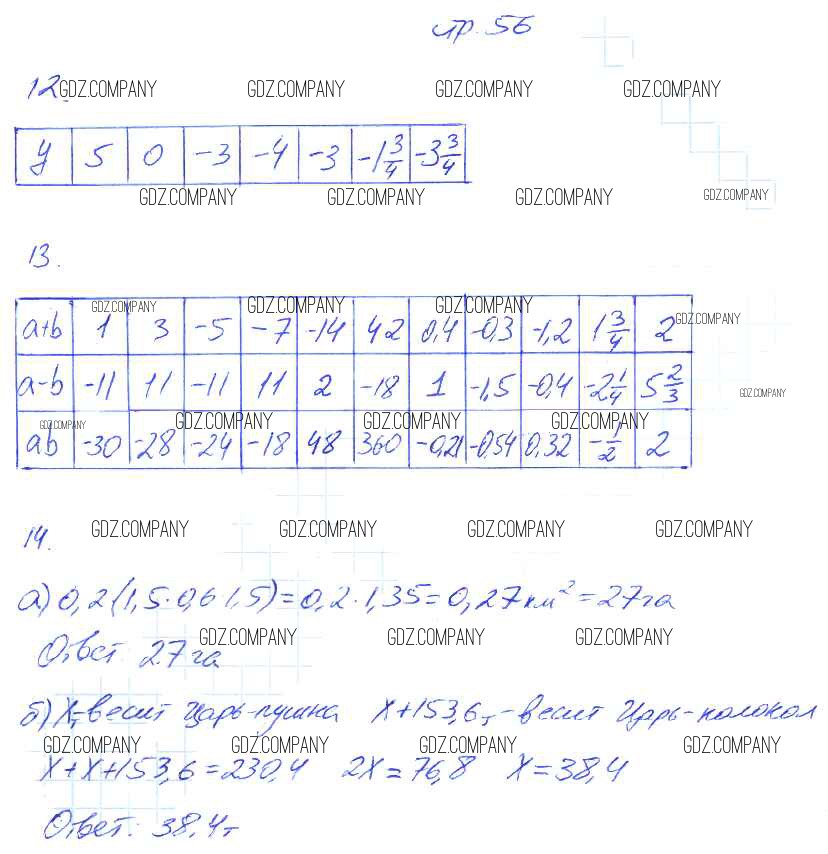 стр. 56
12. GDZ.COMPANY GDZ.COMPANY GDZ.COMPANY GDZ.COMPANY
y 5 0 -3 -4 -3 -1 3/4 -3 3/4
GDZ.COMPANY GDZ.COMPANY GDZ.COMPANY GDZ.COMPANY
13.
GDZ.COMPANY GDZ.COMPANY GDZ.COMPANY GDZ.COMPANY
a+b 1 3 -5 -7 -14 42 0,4 -0,3 -1,2 1 3/4 2
a-b -11 11 -11 11 2 -18 1 -1,5 -0,4 -2 1/4 5 2/3
GDZ.COMPANY GDZ.COMPANY GDZ.COMPANY GDZ.COMPANY GDZ.COMPANY
ab -30 -28 -24 -18 48 360 -0,21 -0,54 0,32 -1/2 2
14. GDZ.COMPANY GDZ.COMPANY GDZ.COMPANY GDZ.COMPANY
а) 0,2(1,5·0,6 1,5)=0,2·1,35=0,27км²=27га
GDZ.COMPANY GDZ.COMPANY GDZ.COMPANY
Ответ: 27га
б) Xт-весит Царь-пушка X+153,6т-весит Царь-колокол
GDZ.COMPANY GDZ.COMPANY GDZ.COMPANY GDZ.COMPANY
X+X+153,6=230,4 2X=76,8 X=38,4
Ответ: 38,4т